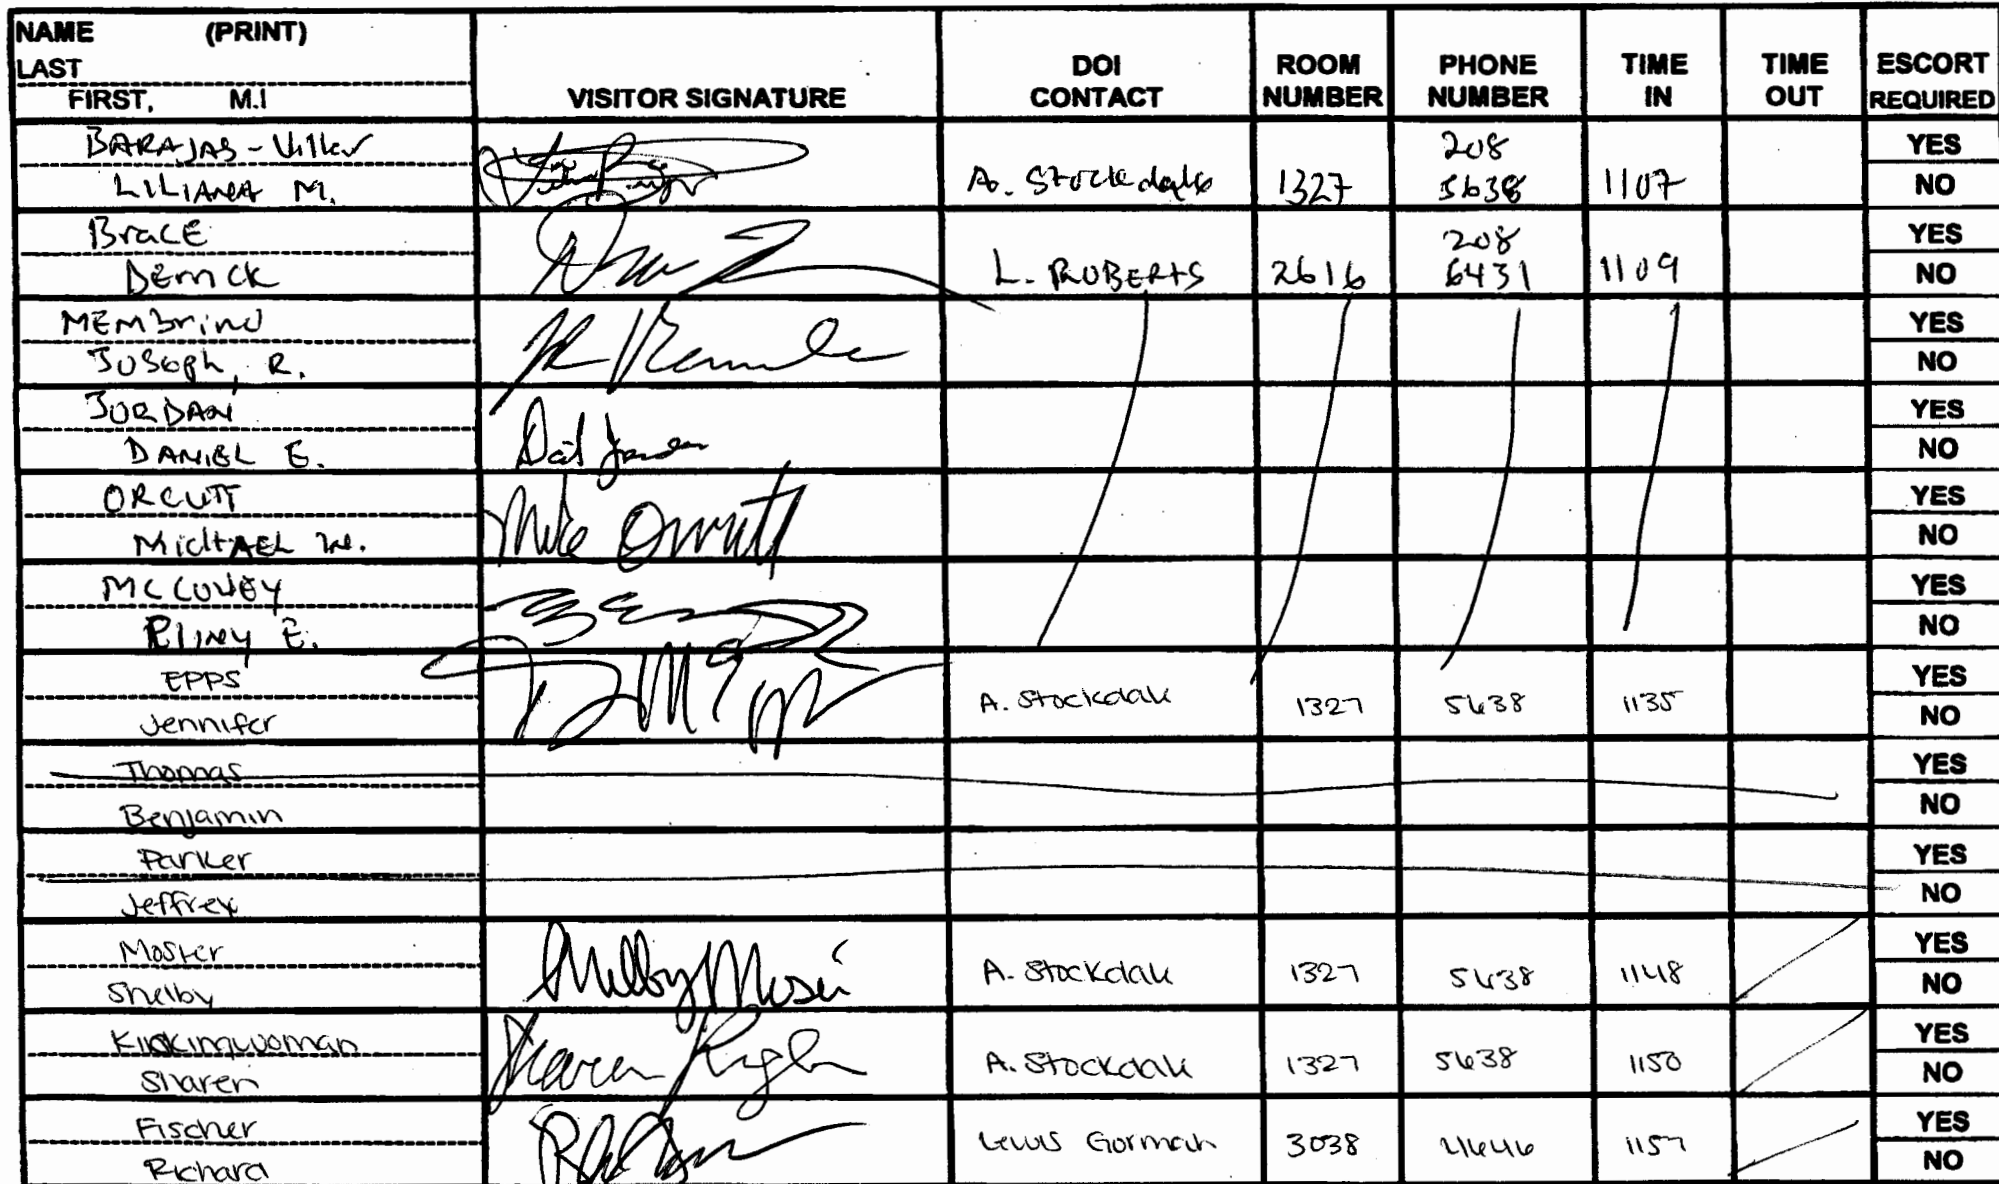 NAME (PRINT)
LAST
FIRST, M.I
VISITOR SIGNATURE
DOI CONTACT
ROOM NUMBER
PHONE NUMBER
TIME IN
TIME OUT
ESCORT REQUIRED
BARAJAS -
LILIANA M.
A. Stockdale 1327 208 5638 1107
YES
NO
BracE
DErrick
L. ROBERTS 2616 208 6431 1109
YES
NO
MEMBrino
JOSEph, R.
YES
NO
JORDAN
DANIEL E.
YES
NO
ORCUTT
MichAEL W.
Mike Orcutt
YES
NO
MCCOVEY
YES
NO
EPPS
Jennifer
A. Stockdale 1327 5638 1135
YES
NO
Thomas
Benjamin
YES
NO
Parker
Jeffrey
YES
NO
Shelby
A. Stockdale 1327 5638 1148
YES
NO
Sharen
A. Stockdale 1327 5638 1150
YES
NO
Fischer
Richard
Lewis Gorman 3038 1157
YES
NO